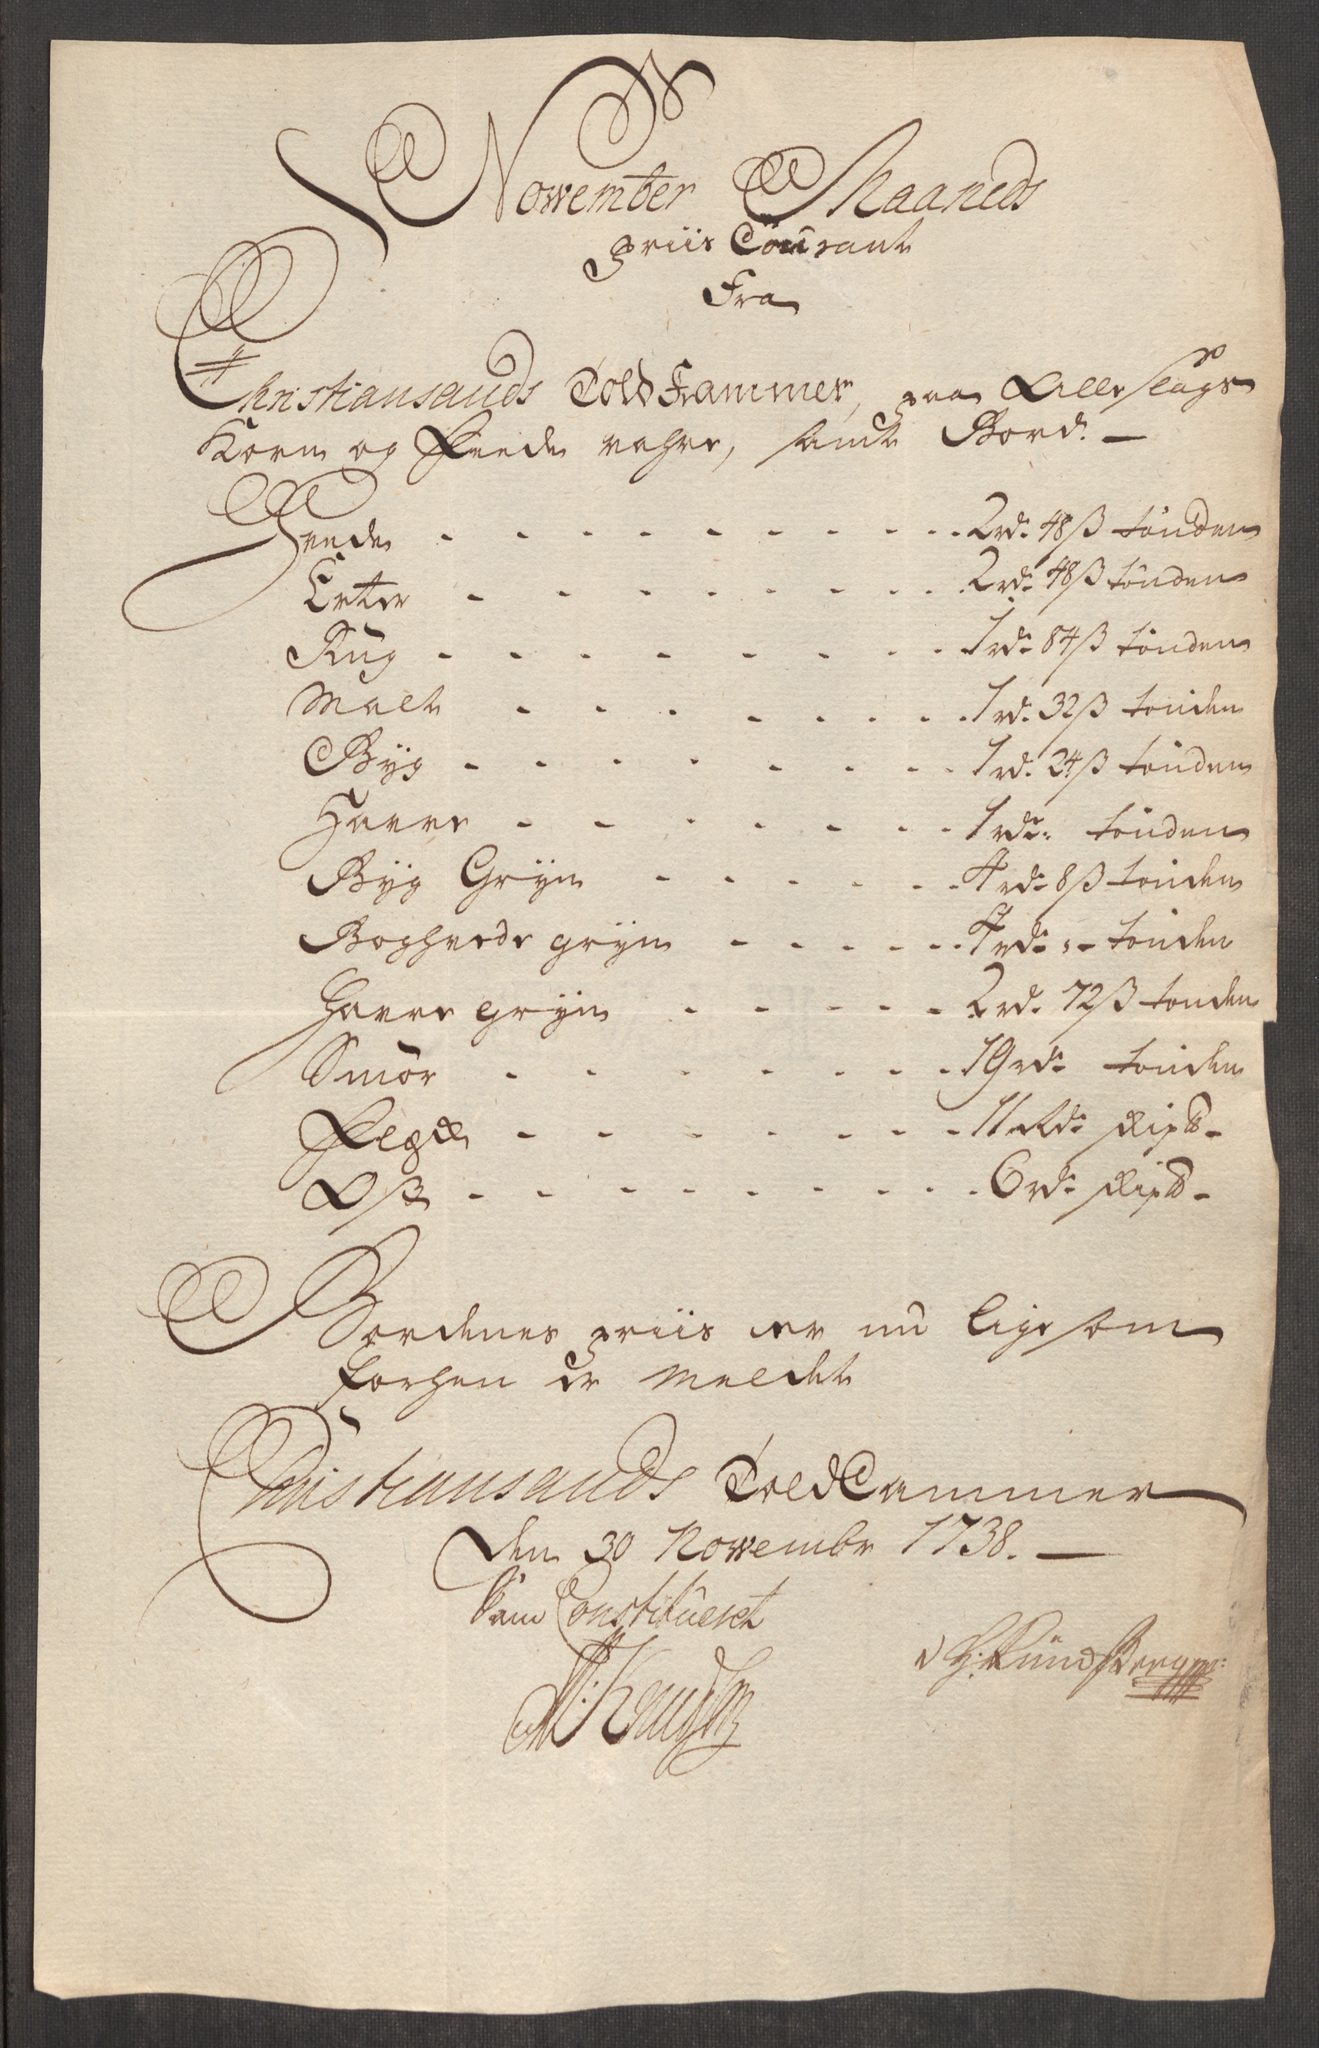 November Maaneds
priis Courant
Fra
Christiansands Told Kammer, paa Alle slags
Korn og Feede vahre, samt Bord. —
Hvede - - - - - - - - 2 rd. 48 ß tønden
Erter - - - - - - - - 2 rd. 48 ß tønden
Rug - - - - - - - - 1 rd. 84 ß tønden
Malt - - - - - - - - 1 rd. 32 ß tønden
Byg - - - - - - - - 1 rd. 24 ß tønden
Havre - - - - - - - 1 rd. tønden
Byg Gryn - - - - - 4 rd. 8 ß tønden
Boghvede gryn - - - - 4 rd. - tønden
Havre gryn - - - - - 2 rd. 72 ß tønden
Smør - - - - - - - 19 rd. tønden
Flesk - - - - - - - 11 Rd. Skip℔ -
Ost - - - - - - - - 6 rd. Skip℔ -
Bordenes priis er nu lige som
forhen er meldet
Christiansands Told Cammer
den 30 Novembr 1738. —
Som Constitueret
Knudsen